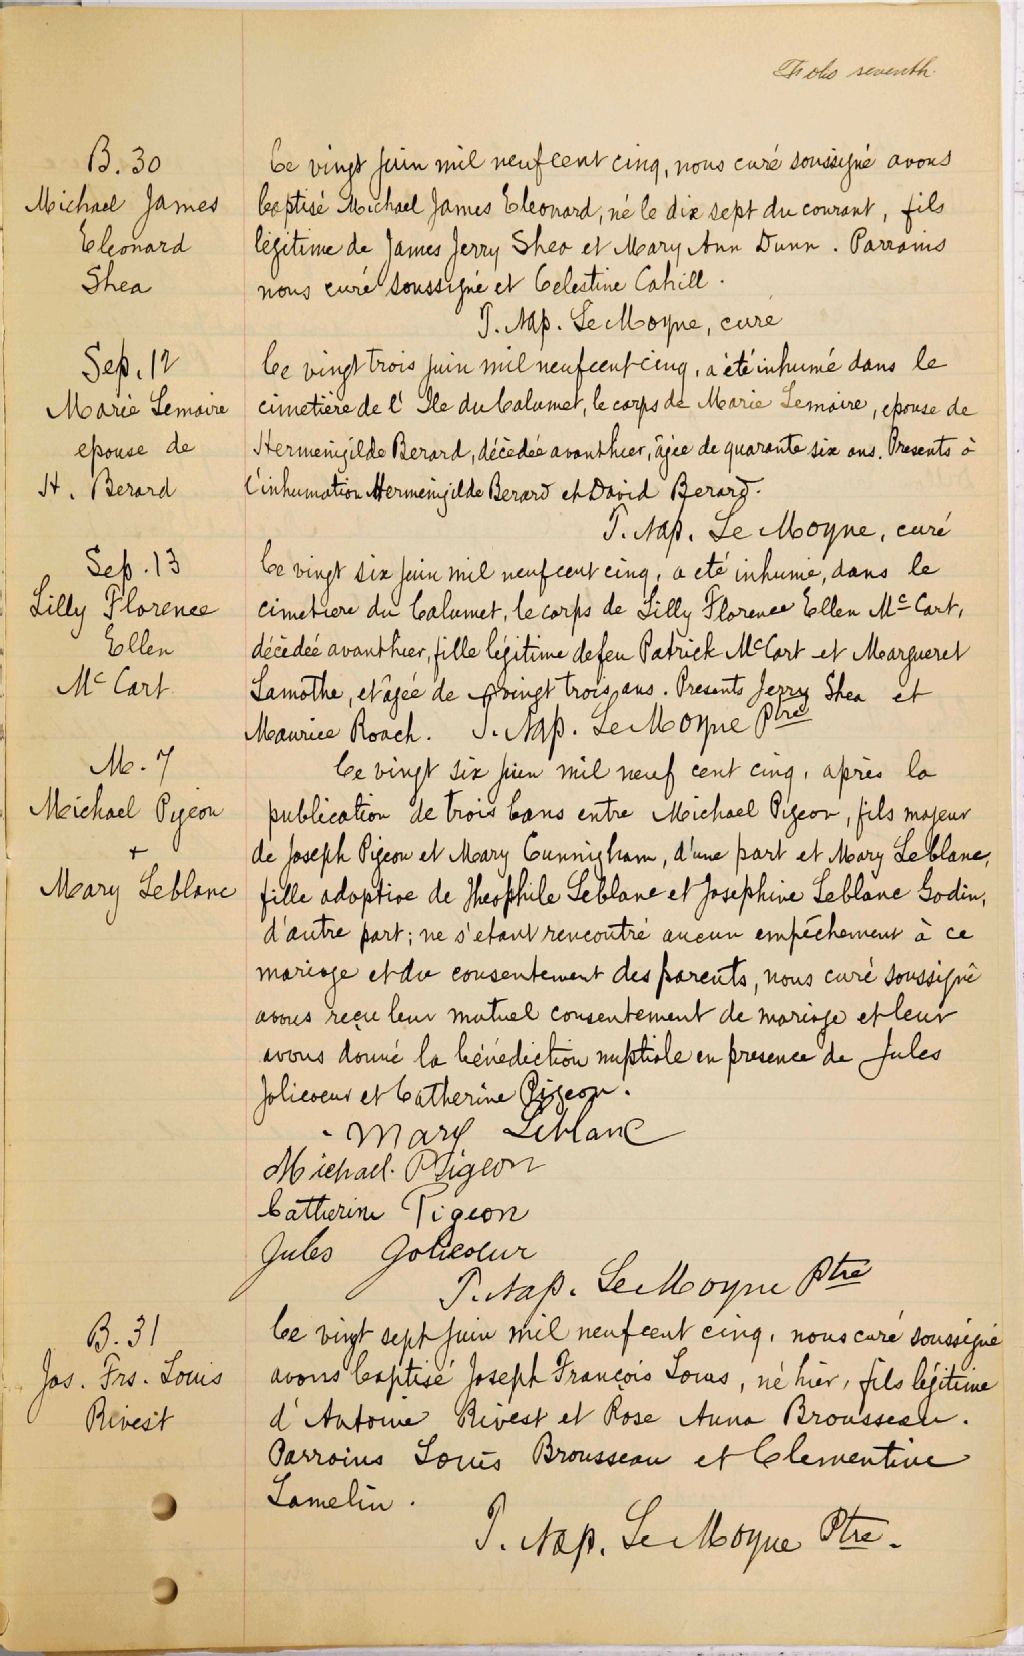 Folio seventh
B. 30
Michael James
Eleonard
Shea
Ce vingt juin mil neuf cent cinq, nous curé soussigné avons
baptisé Michael James Eleonard, né le dix sept du courant, fils
légitime de James Jerry Shea et Mary Ann Dunn. Parrains
nous curé soussigné et Celestine Cahill.
T. Nap. Le Moyne, curé
Sep. 12
Marie Lemaire
epouse de
H. Berard
Ce vingt trois juin mil neuf cent cinq, a été inhumé dans le
cimetière de l'Ile du Calumet, le corps de Marie Lemaire, epouse de
Hermenigilde Berard, décédée avanthier, âgée de quarante six ans. Presents à
l'inhumation Hermenigilde Berard et David Berard.
T. Nap. Le Moyne, curé
Sep. 13
Lilly Florence
Ellen
Mc Cart
Ce vingt six juin mil neuf cent cinq, a eté inhumé, dans le
cimetiere du Calumet, le corps de Lilly Florence Ellen Mc Cart,
décédée avanthier, fille légitime de feu Patrick McCart et Margueret
Lamothe, et âgée de vingt trois ans. Presents Jerry Shea et
Maurice Roach. T. Nap. Le Moyne Ptre
M. 7
Michael Pigeon
+
Mary Leblanc
Ce vingt six juin mil neuf cent cinq, après la
publication de trois bans entre Michael Pigeon, fils majeur
de Joseph Pigeon et Mary Cunnigham, d'une part et Mary Leblanc,
fille adoptive de Theophile Leblanc et Josephine Leblanc Godin,
d'autre part; ne s'etant rencontré aucun empêchement à ce
mariage et du consentement des parents, nous curé soussigné
avons reçu leur mutuel consentement de mariage et leur
avons donné la bénédiction nuptiale en presence de Jules
Jolicoeur et Catherine Pigeon.
Mary Leblanc
Michael Pigeon
Catherine Pigeon
Jules Jolicoeur
T. Nap. Le Moyne Ptre
B. 31
Jos. Frs. Louis
Rivest
Ce vingt sept juin mil neuf cent cinq, nous curé soussigné
avons baptisé Joseph François Louis, né hier, fils légitime
d'Antoine Rivest et Rose Anna Brousseau.
Parrains Louis Brousseau et Clementine
Lamelin.
T. Nap. Le Moyne Ptre.